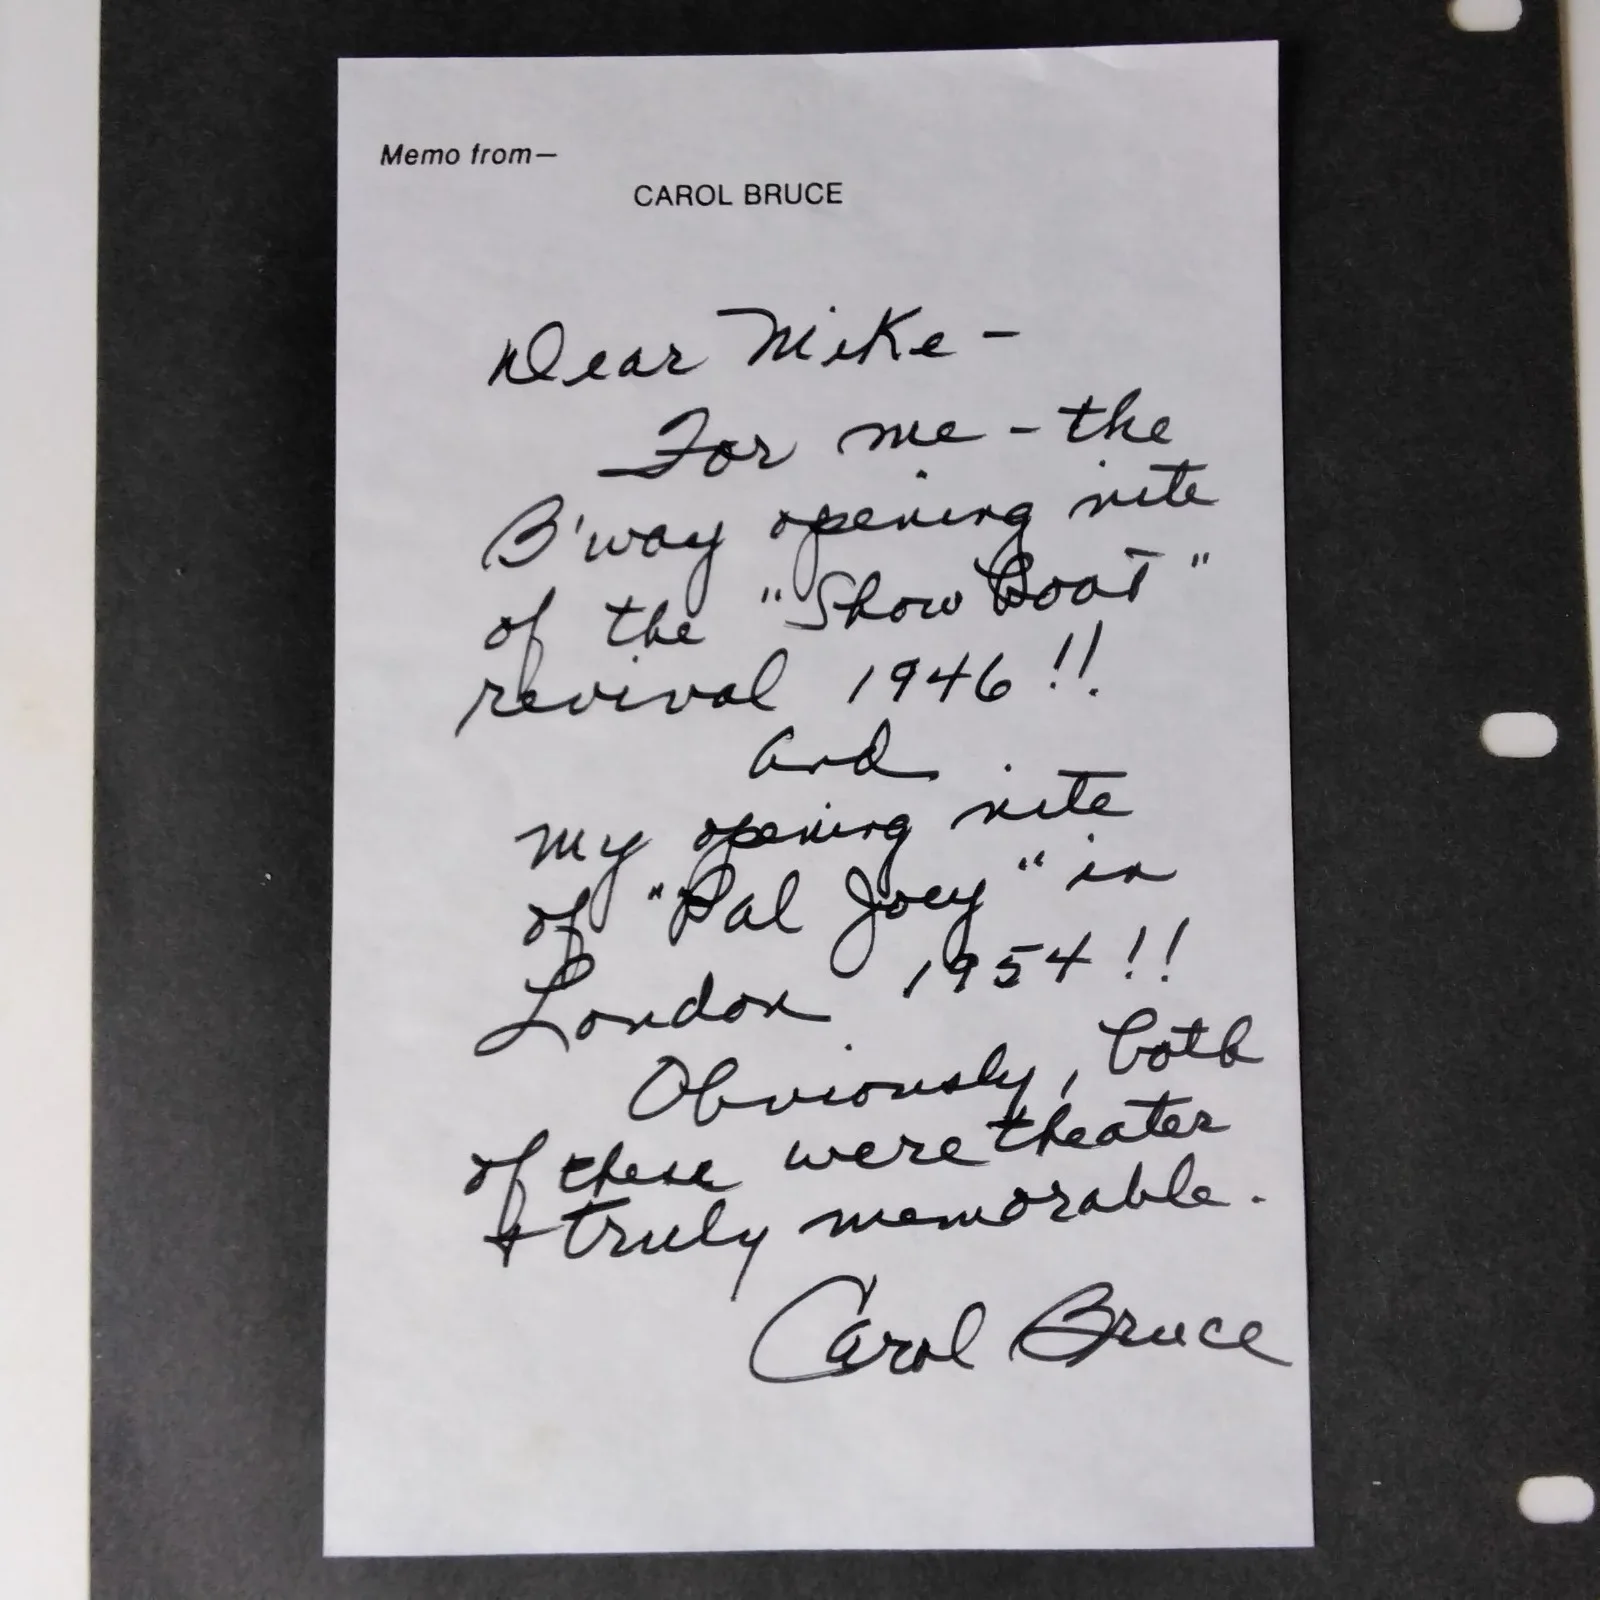 Memo from—
CAROL BRUCE
Dear Mike –
For me – the
B'way opening nite
of the "Show Boat"
revival 1946!!
and
my opening nite
of "Pal Joey" in
London 1954!!
Obviously, both
of these were theater
& truly memorable.
Carol Bruce